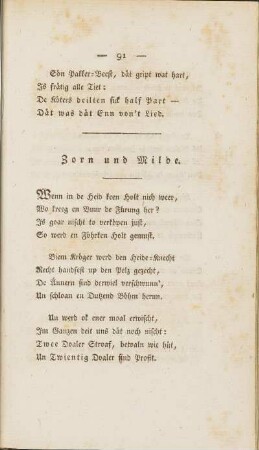 — 91 —
Sön Pakker-Veest, dät gript wat hart,
Is frätig alle Tiet:
De Köters deilten sick half Part —
Dät was dät Enn von't Lied.
Zorn und Milde.
Wenn in de Heid keen Holt nich weer,
Wo kreeg en Buur de Fürung her?
Is goar nischt to verköpen just,
So werd en Föhrken Holt gemust.
Biem Kröger werd den Heide-Knecht
Recht handfest up den Pelz gezecht,
De Ännern sind derwiel verschwunn',
Un schloan en Dutzend Böhm herun.
Un werd ok ener moal erwischt,
Im Ganzen deit uns dät noch nischt:
Twee Doaler Stroaf, betoaln wie hüt,
Un Twientig Doaler sind Profit.